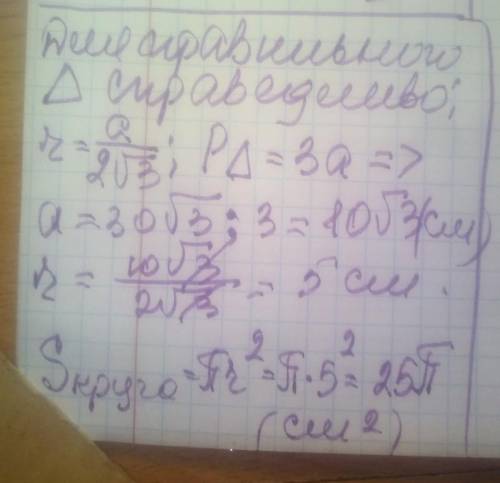 Для правильного
Δ справедливо:
r = a/2√3; PΔ = 3a =>
a = 30√3 : 3 = 10√3 (см)
r = 10√3/2√3 = 5 см.
Sкруга = πr² = π·5² = 25π
(см²)